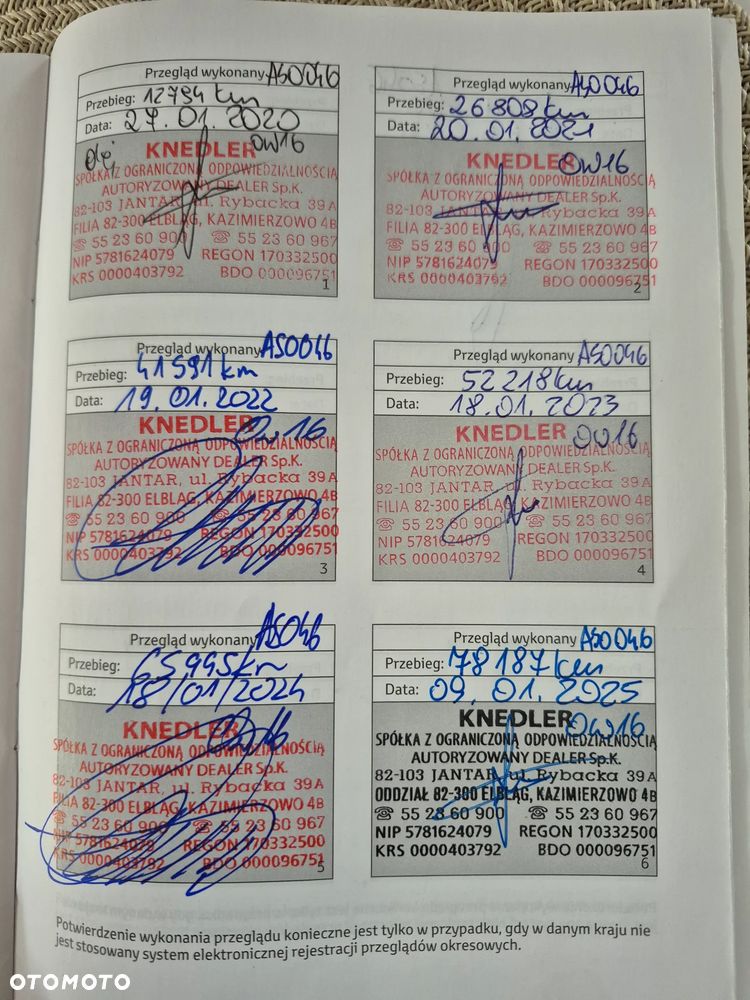 Przegląd wykonany ASO046
Przebieg: 12794 km
Data: 27.01.2020
olej OW16
KNEDLER
SPÓŁKA Z OGRANICZONĄ ODPOWIEDZIALNOŚCIĄ
AUTORYZOWANY DEALER Sp.K.
82-103 JANTAR, ul. Rybacka 39A
FILIA 82-300 ELBLĄG, KAZIMIERZOWO 4B
☎ 55 23 60 900 ☎ 55 23 60 967
NIP 5781624079 REGON 170332500
KRS 0000403792 BDO 000096751
1
Przegląd wykonany ASO046
Przebieg: 26808 km
Data: 20.01.2021
OW16
KNEDLER
SPÓŁKA Z OGRANICZONĄ ODPOWIEDZIALNOŚCIĄ
AUTORYZOWANY DEALER Sp.K.
82-103 JANTAR, ul. Rybacka 39A
FILIA 82-300 ELBLĄG, KAZIMIERZOWO 4B
☎ 55 23 60 900 ☎ 55 23 60 967
NIP 5781624079 REGON 170332500
KRS 0000403792 BDO 000096751
2
Przegląd wykonany ASO046
Przebieg: 41591 km
Data: 19.01.2022
KNEDLER 0W16
SPÓŁKA Z OGRANICZONĄ ODPOWIEDZIALNOŚCIĄ
AUTORYZOWANY DEALER Sp.K.
82-103 JANTAR, ul. Rybacka 39A
FILIA 82-300 ELBLĄG, KAZIMIERZOWO 4B
☎ 55 23 60 900 ☎ 55 23 60 967
NIP 5781624079 REGON 170332500
KRS 0000403792 BDO 000096751
3
Przegląd wykonany ASO046
Przebieg: 52218 km
Data: 18.01.2023
KNEDLER OW16
SPÓŁKA Z OGRANICZONĄ ODPOWIEDZIALNOŚCIĄ
AUTORYZOWANY DEALER Sp.K.
82-103 JANTAR, ul. Rybacka 39A
FILIA 82-300 ELBLĄG, KAZIMIERZOWO 4B
☎ 55 23 60 900 ☎ 55 23 60 967
NIP 5781624079 REGON 170332500
KRS 0000403792 BDO 000096751
4
Przegląd wykonany ASO046
Przebieg: 65995km
Data: 18/01/2024
KNEDLER
SPÓŁKA Z OGRANICZONĄ ODPOWIEDZIALNOŚCIĄ
AUTORYZOWANY DEALER Sp.K.
82-103 JANTAR, ul. Rybacka 39A
FILIA 82-300 ELBLĄG, KAZIMIERZOWO 4B
☎ 55 23 60 900 ☎ 55 23 60 967
NIP 5781624079 REGON 170332500
KRS 0000403792 BDO 000096751
5
Przegląd wykonany ASO046
Przebieg: 78187 km
Data: 09.01.2025
KNEDLER OW16
SPÓŁKA Z OGRANICZONĄ ODPOWIEDZIALNOŚCIĄ
AUTORYZOWANY DEALER Sp.K.
82-103 JANTAR, ul. Rybacka 39A
ODDZIAŁ 82-300 ELBLĄG, KAZIMIERZOWO 4B
☎ 55 23 60 900 ☎ 55 23 60 967
NIP 5781624079 REGON 170332500
KRS 0000403792 BDO 000096751
6
Potwierdzenie wykonania przeglądu konieczne jest tylko w przypadku, gdy w danym kraju nie
jest stosowany system elektronicznej rejestracji przeglądów okresowych.
OTOMOTO